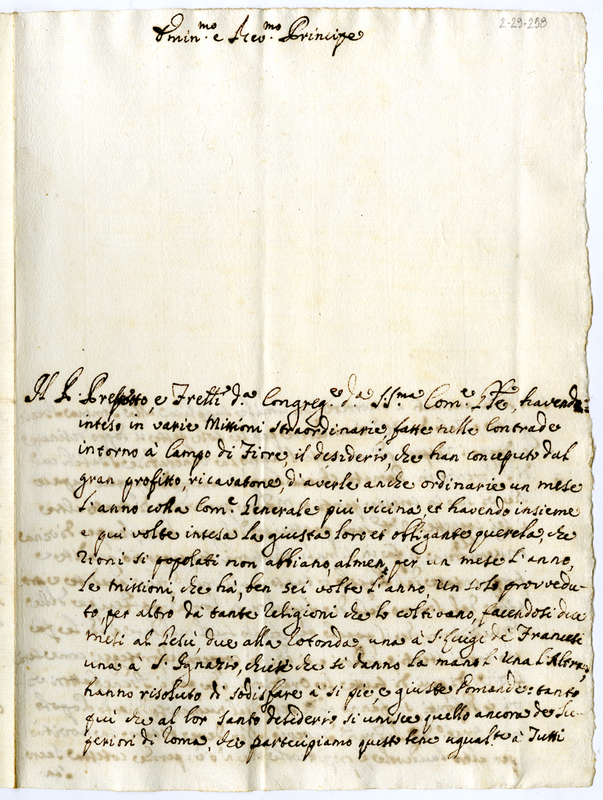 2-29-258
Emin.mo e Rev.mo Principe
Il P. Prefetto, e Fretti d.a Congreg.e d.a SS.ma Com.e havendo
inteso in varie Missioni straordinarie, fatte nelle Contrade
intorno à Campo di Fiore il desiderio, che han conceputo dal
gran profitto, ricavatone, d'averle anche ordinarie un mese
l'anno colla Com.e Generale più vicina, et havendo insieme
e qui volte intesa la giusta loro et obligante querela, che
rioni si popolati non abbiano, almen per un mese l'anno,
le missioni, che ha, ben sei volte l'anno, un solo, provvedu-
to, per altro da tante religioni che lo coltivano, facendosi due
mesi al Gesù, due alla Rotonda una à S. Luigi de Francesi
una à S. Ignazio, chiese che si danno la mano l'una l'altra,
hanno risoluto di sodisfare à si pie, e giuste Domande: tanto
più che al lor santo desiderio si unisce quello ancora de Su-
periori di Roma, che partecipiamo questo bene ugual.te à Tutti